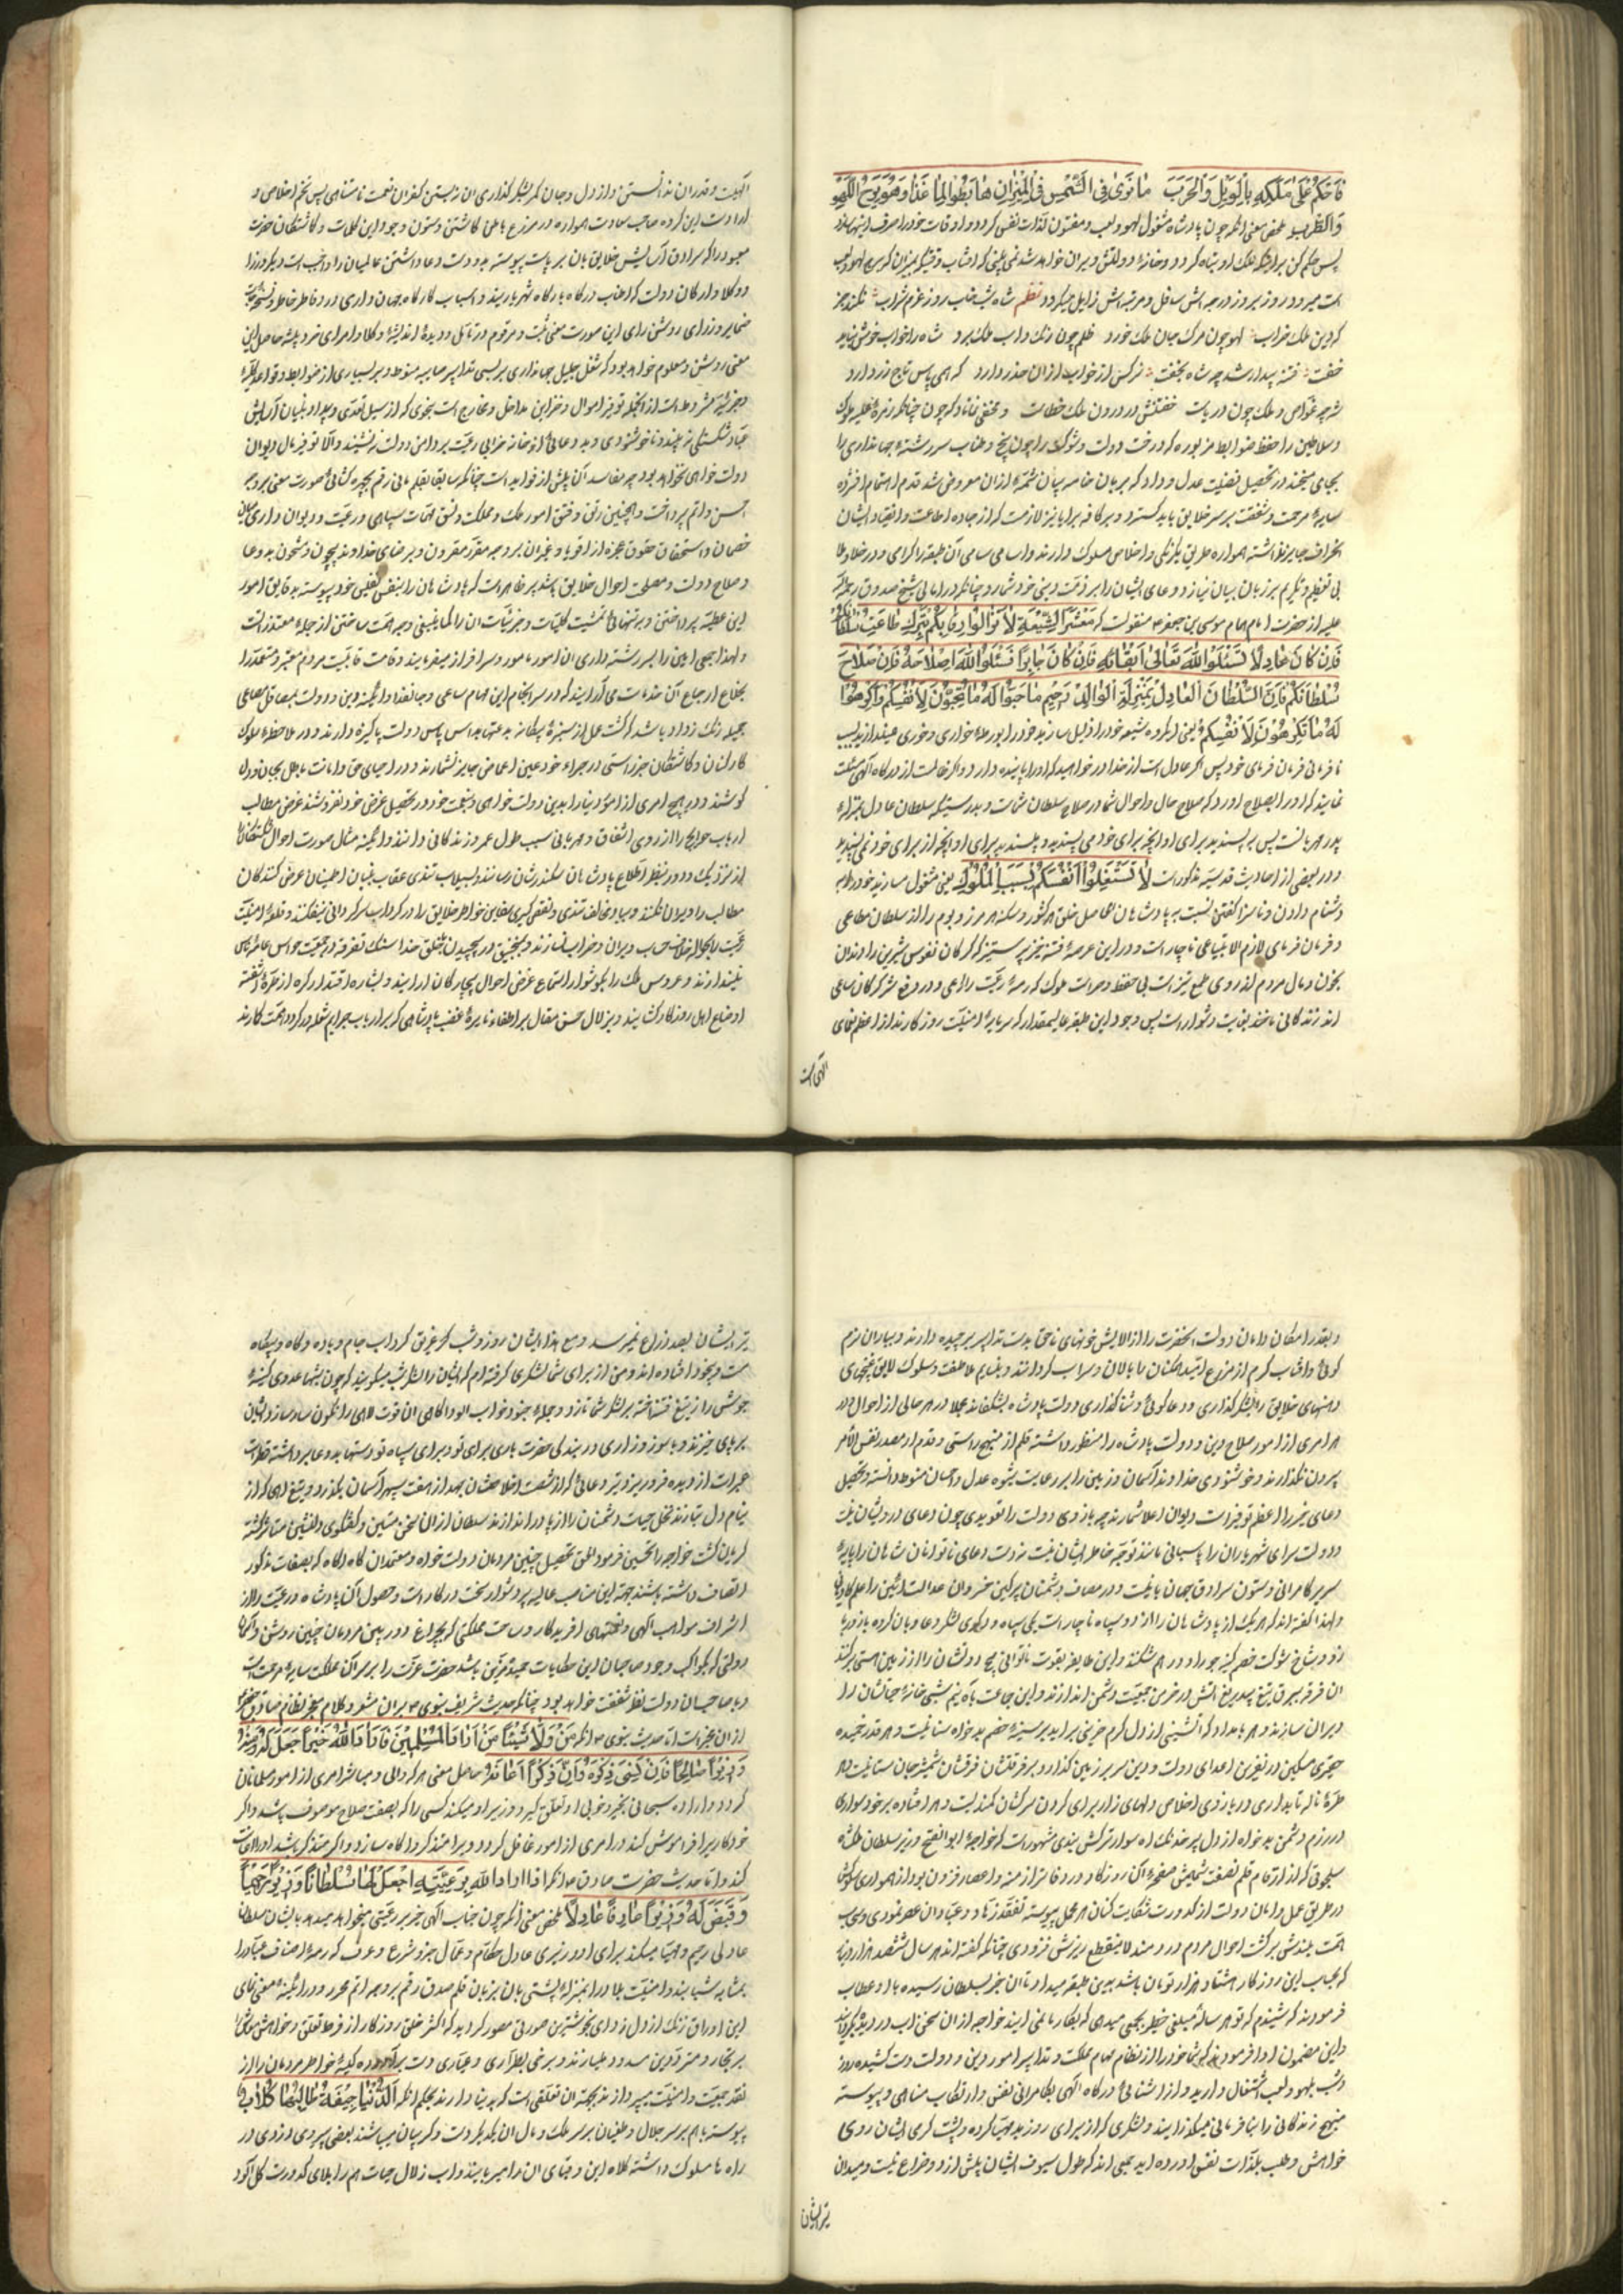 فَاحْکُمْ عَلیٰ مُلْکِهِ بِالْوَیْلِ وَالْحَرَبِ مٰا تَریٰ فِی الشَّمْسِ فِی الْمِیْزٰانِ هٰابِطُهٰا لِمٰا غَدٰا وَهُوَ بُرْجُ اللَّهْوِ
وَالطَّرَبِ ملخص معنی انکه چون پادشاه مشغول لهو ولعب ومفتون لذات نفس کردد واوقات خود را صرف اینها سازد
پس حکم کن بر اینکه ملک او تباه کردد وخانه دولتش ویران خواهد شد نمی بینی که افتاب وقتیکه بمیزان که برج لهو ولعب
است میرود روز بروز درجه اش سافل ومرتبه اش زایل میکردد نظم شاه شب خاب روز عزم شراب نکند جز
که این ملک خراب لهو چون مرک جان ملک خورد ظلم چون زنک داب ملک برد شاه را خواب خوش نباید
خفت فتنه بیدار شد چه شاه بخفت نرکس از خواب ازان حذر دارد که همی پاس تاج زر دارد
شه چه غواص وملک چون دریاست خفتنش در درون ملک خطاست ومخفی نماناد که چون چنانکه زمره علیه ملوک
وسلاطین را حفظ ضوابط مزبوره که درخت دولت وشوکت را چون بیخ وطناب سررشته جهانداری را
بجای میخند در تحصیل فضیلت عدل وداد که بر بان خامه بیان شمه ازان معروض شد قدم اهتمام افشرده
سایه مرحمت وشفقت بر سر خلایق باید کسترد وبر کافه برایا نیز لازمست که از جاده اطاعت وانقیاد ایشان
انحراف جایز نداشته همواره طریق یکرنکی واخلاص مسلوک دارند واسامی سامی آن طبقه را کرامی ودر خلا وملا
بی تعظیم وتکریم بر زبان بیان نیاز ند ودعای ایشان را بر ذمت دینی خود شمارد چنانکه در امالی شیخ صدوق رحمة الله
علیه از حضرت امام همام موسی بن جعفر منقولست که مَعْشَرَ الشِّیعَةِ لٰا تُذِلُّوا رِقٰابَکُمْ بِتَرْكِ طٰاعَةِ سُلْطٰانِکُمْ
فَاِنْ کٰانَ عٰادِلًا فَسْئَلُوا اللّٰهَ تَعٰالیٰ اِبْقٰائَهُ فَاِنْ کٰانَ جٰایِرًا فَسْئَلُوا اللّٰهَ اِصْلٰاحَهُ فَاِنَّ صَلٰاحَ
سُلْطٰانِکُمْ فَاِنَّ السُّلْطٰانَ الْعٰادِلَ بِمَنْزِلَةِ الْوٰالِدِ الرَّحِیمِ مٰا حِبُّوا لَهُ مٰا تُحِبُّونَ لِاَنْفُسِکُمْ وَاکْرَهُوا
لَهُ مٰا تَکْرَهُونَ لِاَنْفُسِکُمْ یعنی ای کروه شیعه خود را ذلیل سازید خود را بورطه خواری وخوری میندازید بسبب
نافرمانی فرمان فرمای خود پس اکر عادل است از خدا در خواهید که او را پاینده دارد واکر ظالمست از درکاه الهی مسئلت
نمایید که او را باصلاح اورد که صلاح حال واحوال شما در صلاح سلطان شماست وبدرستیکه سلطان عادل بمنزله
پدر مهربانست پس بپسندید برای او انچه برای خود می پسندید ومپسندید برای او انچه از برای خود نمی پسندید
ودر بعضی از احادیث قدسیه مذکور است لٰا تَشْتَغِلُوا اَنْفُسَکُمْ بِسَبِّ الْمُلُوكِ یعنی مشغول مسازید خود را به
دشنام دادن وناسزا کفتن نسبت به پادشاهان حاصل خلق هر کشور وسکنه هر مرز وبوم را از سلطان مطاعی
وفرمان فرمای لازم الاتباعی ناچار است ودر این عرصه فتنه خیز پر ستیز که کرکان نفوس شریر را دندان
بخون ومال مردم از روی طمع تیز است بی حفظ وحراست ملوک که رمه رعیت را راعی ودر دفع شر کرکان ساعی
اند زندکانی ناخذ بغایت دشوار است پس وجود این طبقه عالیمقدار که سرمایه امنیت روز کارند از اعظم نعمای
الهی است
الهیست وقدر ان ندانستن واز دل وجان کمر بشکر کذاری ان نبستن کفران نعمت نامتناهی پس تخم اخلاص و
ارادت این کروه صاحب سعادت همواره در مزرع باطن کاشتن وستون وجود این کلمات وکماشتکان حضرت
معبود را که سرادق آسایش خلایق بان بر پاست پیوسته بدولت ودعا داشتن عالمیان را واجب است ودیکر وزرا
ووکلا وارکان دولت که اطناب درکاه بارکاه شهریارند واسباب کارکاه جهان داری در دفاتر خاطر ونسخه
ضمایر وزرای روشن رای این صورت معنی ثبت ومرقوم در تأمل ودیده اندیشه وکلا وامرای خرد پیشه حاصل این
معنی روشن ومعلوم خواهد بود که شغل جلیل جهانداری بر بسی تدابیر صائبه منوط وبر بسیاری از ضوابط وقواعد کلیه
وجزئیه مشروط است از انجمله توفیر اموال وخزاین مداخل ومخارج است بنحوی که از سیل تعدی وبیداد بنیان آسایش
عباد شکستکی نپذیرد وناخوشنودی وبد دعائی از خانه خرابی رعیت بر دامن دولت ننشیند والا توفیر مال دیوان
دولت خواهی نخواهد بود چه مفاسد آن بیش از فواید است چنانکه سابقا بقلم مانی رقم بچهره کشائی صورت معنی بر وجه
احسن واتم پرداخت وهمچنین رتق وفتق امور ملک ومملکت ونسق مهمات سپاهی ورعیت ودیوان داری میان
خصمان واستحقاق حقوق عجزه از اقویا وغیران بر وجه مقرر مقرون وبر رضای خداوند بیچون ومشحون بدعا
وصلاح دولت ومصلحت احوال خلایق باشد بر ظاهر است که پادشاهان را بنفس نفیس خود پیوسته بدقایق امور
این عطیه پرداختن وبتنهائی تمشیت کلیات وجزئیات ان را کما ینبغی وجهه همت ساختن از جمله متعذراتست
ولهذا جمعی امین را بسررشته داری ان امور مامور وسرافراز میفرمایند وقامت قابلیت مردم معتبر ومعتمد را
بخلاع ارجاع آن خدمات می آرایند که در سرانجام این مهام ساعی وجانفدا وائینه دین ودولت بمصاقل مساعی
جمیله زنک زدا وباشد که کشت عمل از سبزه بیکانه بدعتها بداس پاس دولت پاکیزه دارند ودر ملاحظه سلوک
کارکنان وکماشتکان جز راستی در جراء خود عین اعماض جایز نشمارند ودر احیای حق وامانت باطل بجان ودل
کوشند ودر هیچ امری از امور دنیا را بدین دولت خواهی ونعمت خود در تحصیل غرض خود نفروشند غرض مطالب
ارباب حوایج را از روی اشفاق ومهربانی سبب طول عمر وزندکانی دانند وائینه مثال صورت احوال شکستکان را
از نزدیک ودور بنظر اطلاع پادشاهان سکندرشان رسانند وبسیلاب تندی عقاب بنیان اطمینان عرض کنندکان
مطالب را ویران نکنند وبباد مخالف تندی ونفس کیری سفاین خواطر خلایق را در کرداب سرکردانی نیفکنند وقلعه امنیت
رعیت را بحواله خلاف حساب ویران وخراب نسازند وبمنجنیق در پیچیدن بخلق خدا سنک تفرقه در جمعیت حواس عامه ناس
نیندازند وعروس ملک را بکوشوار استماع عرض احوال بیچارکان ارایند وبشانه اقتدار کره از طره اشفته
اوضاع اهل روزکار کشایند وبزلال حسن مقال بر اطفاء نایره غضب پادشاهی که بر ارباب جرایم شعله ور کردد همت کمارند
وبقدر امکان دامان دولت انحضرت را از الایش خونهای ناحق بدست تدابیر برچیده دارند وبباران نرم
کوئی وافتاب کرم از مزرع امید همکنان را بالان وسراب کردانند وبنسایم ملاطفت وسلوک لایق غنچهای
دهنهای خلایق را بشکرکذاری ودعا کوئی وثنا کذاری دولت پادشاه بشکفانند مجملا در هر حالی از احوال ودر
هر امری از امور صلاح دین ودولت پادشاه را منظور داشته قلم از منهج راستی وقدم از مصدر نفس الامر
بیرون نکذارند وخوشنودی خداوند آسمان وزمین را بر رعایت شیوه عدل واحسان منوط دانسته وتحصیل
دعای خیر را اعظم توفیرات دیوان اعلا شمارند چه بازوی دولت را تقویدی چون دعای درویشان نیست
ودولت سرای شهریاران را پاسبانی مانند توجه خاطر ایشان نیست ز دست دعای ناتوانان شاهان را پایه
سریر کامرانی وستون سرادق جهان بانیست ودر مصاف دشمنان پرکین خسروان عدالت ائین را علم کاویانی
ولهذا کفته اند که هر یک از پادشاهان را از دو سپاه ناچار است یکی سپاه ودیکری لشکر دعا وبان کروه بازو زیبا
زد وبشاخ شوکت خصم کینه جو را در هم شکند واین طایفه بقوت ناتوانی بیخ دولتشان را از زمین هستی برکند
ان فرقه ببرق تیغ بیدریغ اتش در خرمن جمعیت دشمن اندازند واین جماعت باه نیم شبی خانه حیاتشان را
ویران سازند وهر بامداد که اتشینی از دل کرم حزینی براید بر سینه خصم بدخواه سنانیست وهر قد خمیده
حقیری مسکین در نفرین اعدای دولت ودین سر بر زمین کذارد وبر فرقتشان فرقشان شمشیر جان ستانیست وهر
طره ناله تابداری در بازوی اخلاص دلهای زار برای کردن سرکشان کمندیست وهر افتاده برخود سواری
در رزم دشمن بدخواه از دل پر خدنک اه سوار ترکش بندی مشهور است که خواجه ابو الفتح وزیر سلطان ملکشاه
سلجوقی که از ارقام قلم نصفت شمیمش صفحه آن روزکار در دفاتر ازمنه واعصار فزون بود از همواری سلوکش
در طریق عمل دامان دولت از کدورت شقایت کنان هر محل پیوسته بتفقد زهاد وعباد ان عصر نمودی وسحاب
همت بلندش بر کشت احوال مردم دردمند لا ینقطع ریزش فزودی چنانکه کفته اند هر سال ششصد هزار دینار
که بحساب این روزکار هشتاد هزار تومان باشد بدین طبقه میداد تا ان خبر بسلطان رسیده با او عطاب
فرمودند که شنیدم که تو هر ساله مبلغی خطیر بجمعی میدهی که بکار ما نمی ایند خواجه ازان سخن اب در دیده بکردانید
واین مضمون ادا فرمود که شما خود را از نظام مهام مملکت وتدابیر امور دین ودولت دست کشیده روز
وشب بلهو ولعب اشتغال دارید واز اشنائی درکاه الهی بکامرانی نفس وارتکاب مناهی وپیوسته
منهج زندکانی را بنافرمانی میکذرانید ولشکری که از برای روز بد مهیا کرده وپشت کرمی ایشان روی
خواهش وطلب بلذات نفس اورده اید جمعی اند که طول سیوف ایشان بیش از دو ذراع نیست ومیدان
تیرایشان
تیر ایشان بصد ذراع نمیرسد ومع هذا ایشان روز وشب غریق کرداب جام وباده وکاه وبیکاه
مست وبیخود افتاده اند ومن از برای شما لشکری کرفته ام که ایشان را لشکر شب میکویند که چون شبها عدوی کینه
جوش را زیتغ فتنه اخته بر لشکر شما تازد وجمله جنود خواب الود اکاهی ان قوت لاهی را نکون سار سازد ایشان
بر پای خیزند وبا سوز وزاری در بندکی حضرت باری برای تو وبرای سپاه تو دستها بدعا برداشته قطرات
عبرات از دیده فرو ریزند وتیر دعائی که از شصت اخلاصشان بجهد از هفت سپهر آسمان بکذرد وبتیغ اهی که از
نیام دل بتازند نخل حیات دشمنان را از پا در اندازند سلطان ازان سخن متین وکفتکوی دلنشین متأثر کشته
کریان کشت خواجه را تحسین فرمود الحق تحصیل چنین مردمان دولت خواه ومعتمدان کاه اکاه که بصفات مذکور
اتصاف داشته باشند جهت این مناصب عالیه پر دشوار سخت درکار است وحصول آن پادشاه ورعیت را از
اشراف مواهب الهی ونعمتهای افریدکار وساحت مملکتی که بچراغ دوربین مردمان چنین روشن واسمان
دولتی که بکواکب وجود صاحبان این خطابات مبین مزین باشد حضرت عزت را بر سر آن مملکت سایه مرحمت است
وبا صاحبان دولت نظر شفقت خواهد بود چنانکه حدیث شریف نبوی بران مشعر وکلام معجز نظام صادق مخبر
ازان مخبر است اما حدیث نبوی انکه مَنْ وُلِّیَ شَیْئًا مِنْ اَمْرِ الْمُسْلِمِینَ فَاَرٰادَ اللّٰهُ خَیْرًا جَعَلَ لَهُ
وَزِیرًا صٰالِحًا فَاِنْ نَسِیَ ذَکَّرَهُ وَاِنْ ذَکَرَ اَعٰانَهُ حاصل معنی هر که والی ومباشر امری از امور مسلمانان
کردد واراده سبحانی بخیر وخوبی او تعلق کیرد وزیر او میکند کسی را که بصفت صلاح موصوف باشد واکر
خود کار خیر را فراموش کند در امری از امور غافل کردد ویرا متذکر واکاه سازد واکر متذکر باشد او را اعانت
کند واما حدیث حضرت صادق انکه اذا اراد الله بِرَعِیَّةٍ خَیْرًا جَعَلَ لَهٰا سُلْطٰانًا رَحِیمًا
وَقَیَّضَ لَهُ وَزِیرًا عٰادِلًا ملخص معنی انکه چون جناب الهی خیر بر رعیتی میخواهد میدهد بایشان سلطان
عادلی رحیم ومهیا میکند برای او وزیری عادل حکام وعمال جزو شرع وعرف که رمه اصناف عباد را
بمثابه شبانند وامنیت بلاد را بمنزله پشتی بان بزبان قلم صدق رقم بر وجه اتم محرر ودر ائینه معنی نمای
این اوراق زنک از دل زدای بخوشترین صورتی مصور کردید که اکثر خلق روزکار از فرط تعلق وخواهش متاع
بر تجار ومترددین مسدود میسازند وبرخی بطراری وعیاری دست برآورده کیسه خواطر مردمان را از
نقد جمعیت وامنیت میپردازند بجهة ان تعلقی است که بدنیا دارند بحکم انکه اَلدُّنْیٰا جِیفَةٌ وَطٰالِبُهٰا کِلٰابٌ
پیوسته باهم بر سر جلال وطغیان بر سر ملک ومال ان یکدیکر دست وکریبان میباشند بعضی پیروی دزدی در
راه ها مسلوک داشته کلاه این وقبای ان را میربایند واب زلال حیات هم را بلای کدورت کل آلود